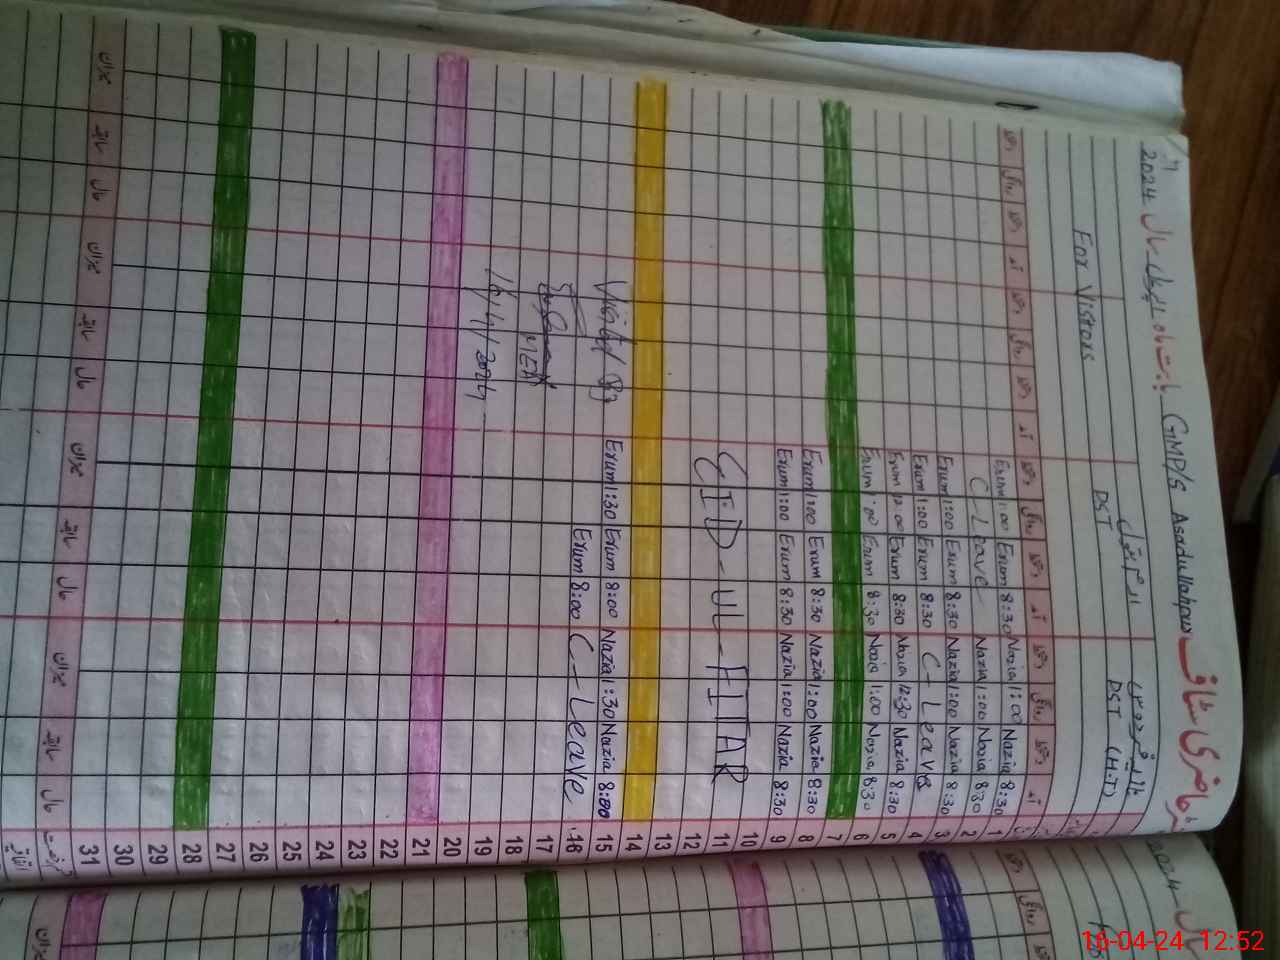 2024 سال اپریل بابت ماہ GMP/S Asadullahpur حاضری سٹاف
For Vistors
DST
DST (H-T)
1 Nazia 8:30 Nazia 1:00 Erum 8:30 Erum 1:00
2 Nazia 8:30 Nazia 1:00 C-Leave
3 Nazia 8:30 Nazia 1:00 Erum 8:30 Erum 1:00
4 C-Leave Erum 8:30 Erum 1:00
5 Nazia 8:30 Nazia 12:30 Erum 8:30 Erum 12:00
6 Nazia 8:30 Nazia 1:00 Erum 8:30 Erum 1:00
7
8 Nazia 8:30 Nazia 1:00 Erum 8:30 Erum 1:00
9 Nazia 8:30 Nazia 1:00 Erum 8:30 Erum 1:00
10
11 EID-UL-FITAR
12
13
14
15 Nazia 8:00 Nazia 1:30 Erum 8:00 Erum 1:30 Visited By
16 C-Leave Erum 8:00
17 MEA
18
19 16/4/2024
20
21
22
23
24
25
26
27
28
29
30
31
2024
16-04-24 12:52